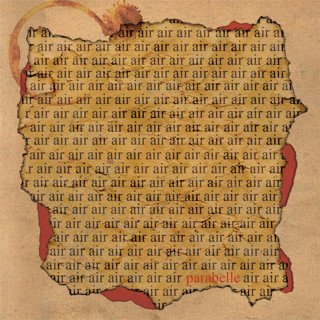 ir a air air air air air air air air air
air air air air air air air air air air air air air air
air air air air air air air air air air air air air air
air air air air air air air air air air air air air air
air air air air air air air air air air air air air air
air air air air air air air air air air air air air air
air air air air air air air air air air air air air air
air air air air air air air air air air air air air air
air air air air air air air air air air air air air air
air air air air air air air air air air air air air air
air air air air air air air air air air air air air air
air air air air air air air air air air air air air air
air air air air air air air air air air air air air
air air air air air air air air air air air air air
air air air air air air air air air air air air
air air air air air air air air air air air air
air air air air air air air air air air air air
air air air air air air air air air air air air air
air air air air air air air parabelle air air a
air air air air air air air air air air air